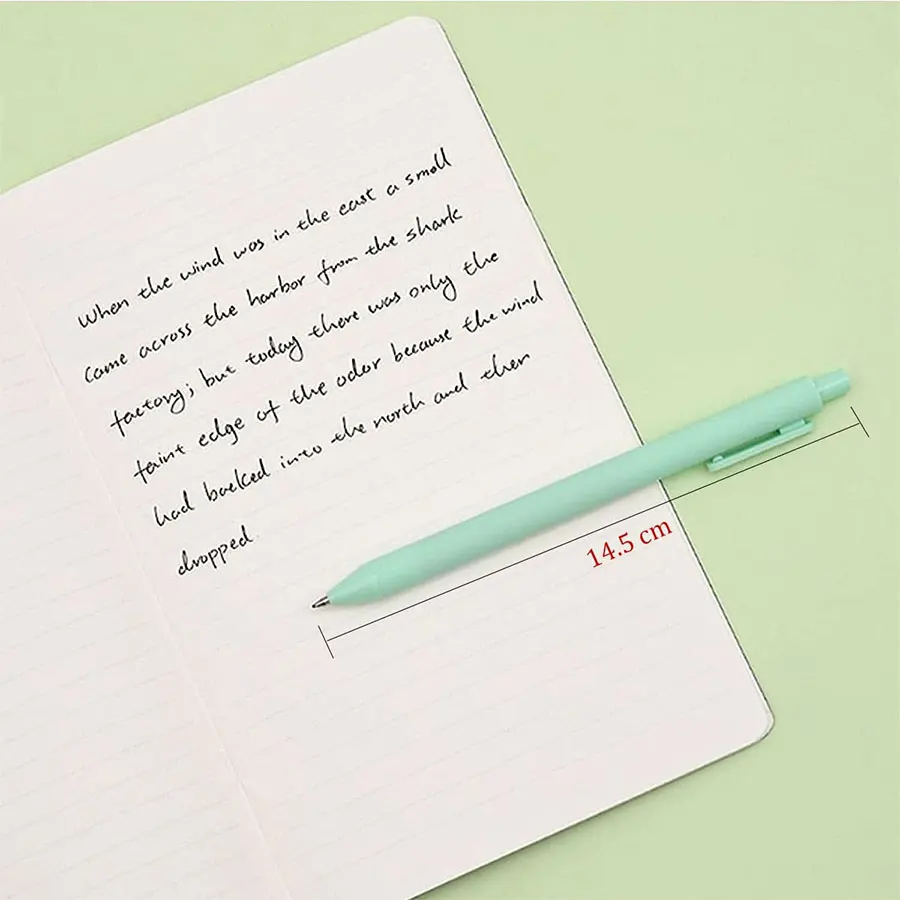 When the wind was in the east a smell
came across the harbor from the shark
factory; but today there was only the
faint edge of the odor because the wind
had backed into the north and then
dropped.
14.5 cm